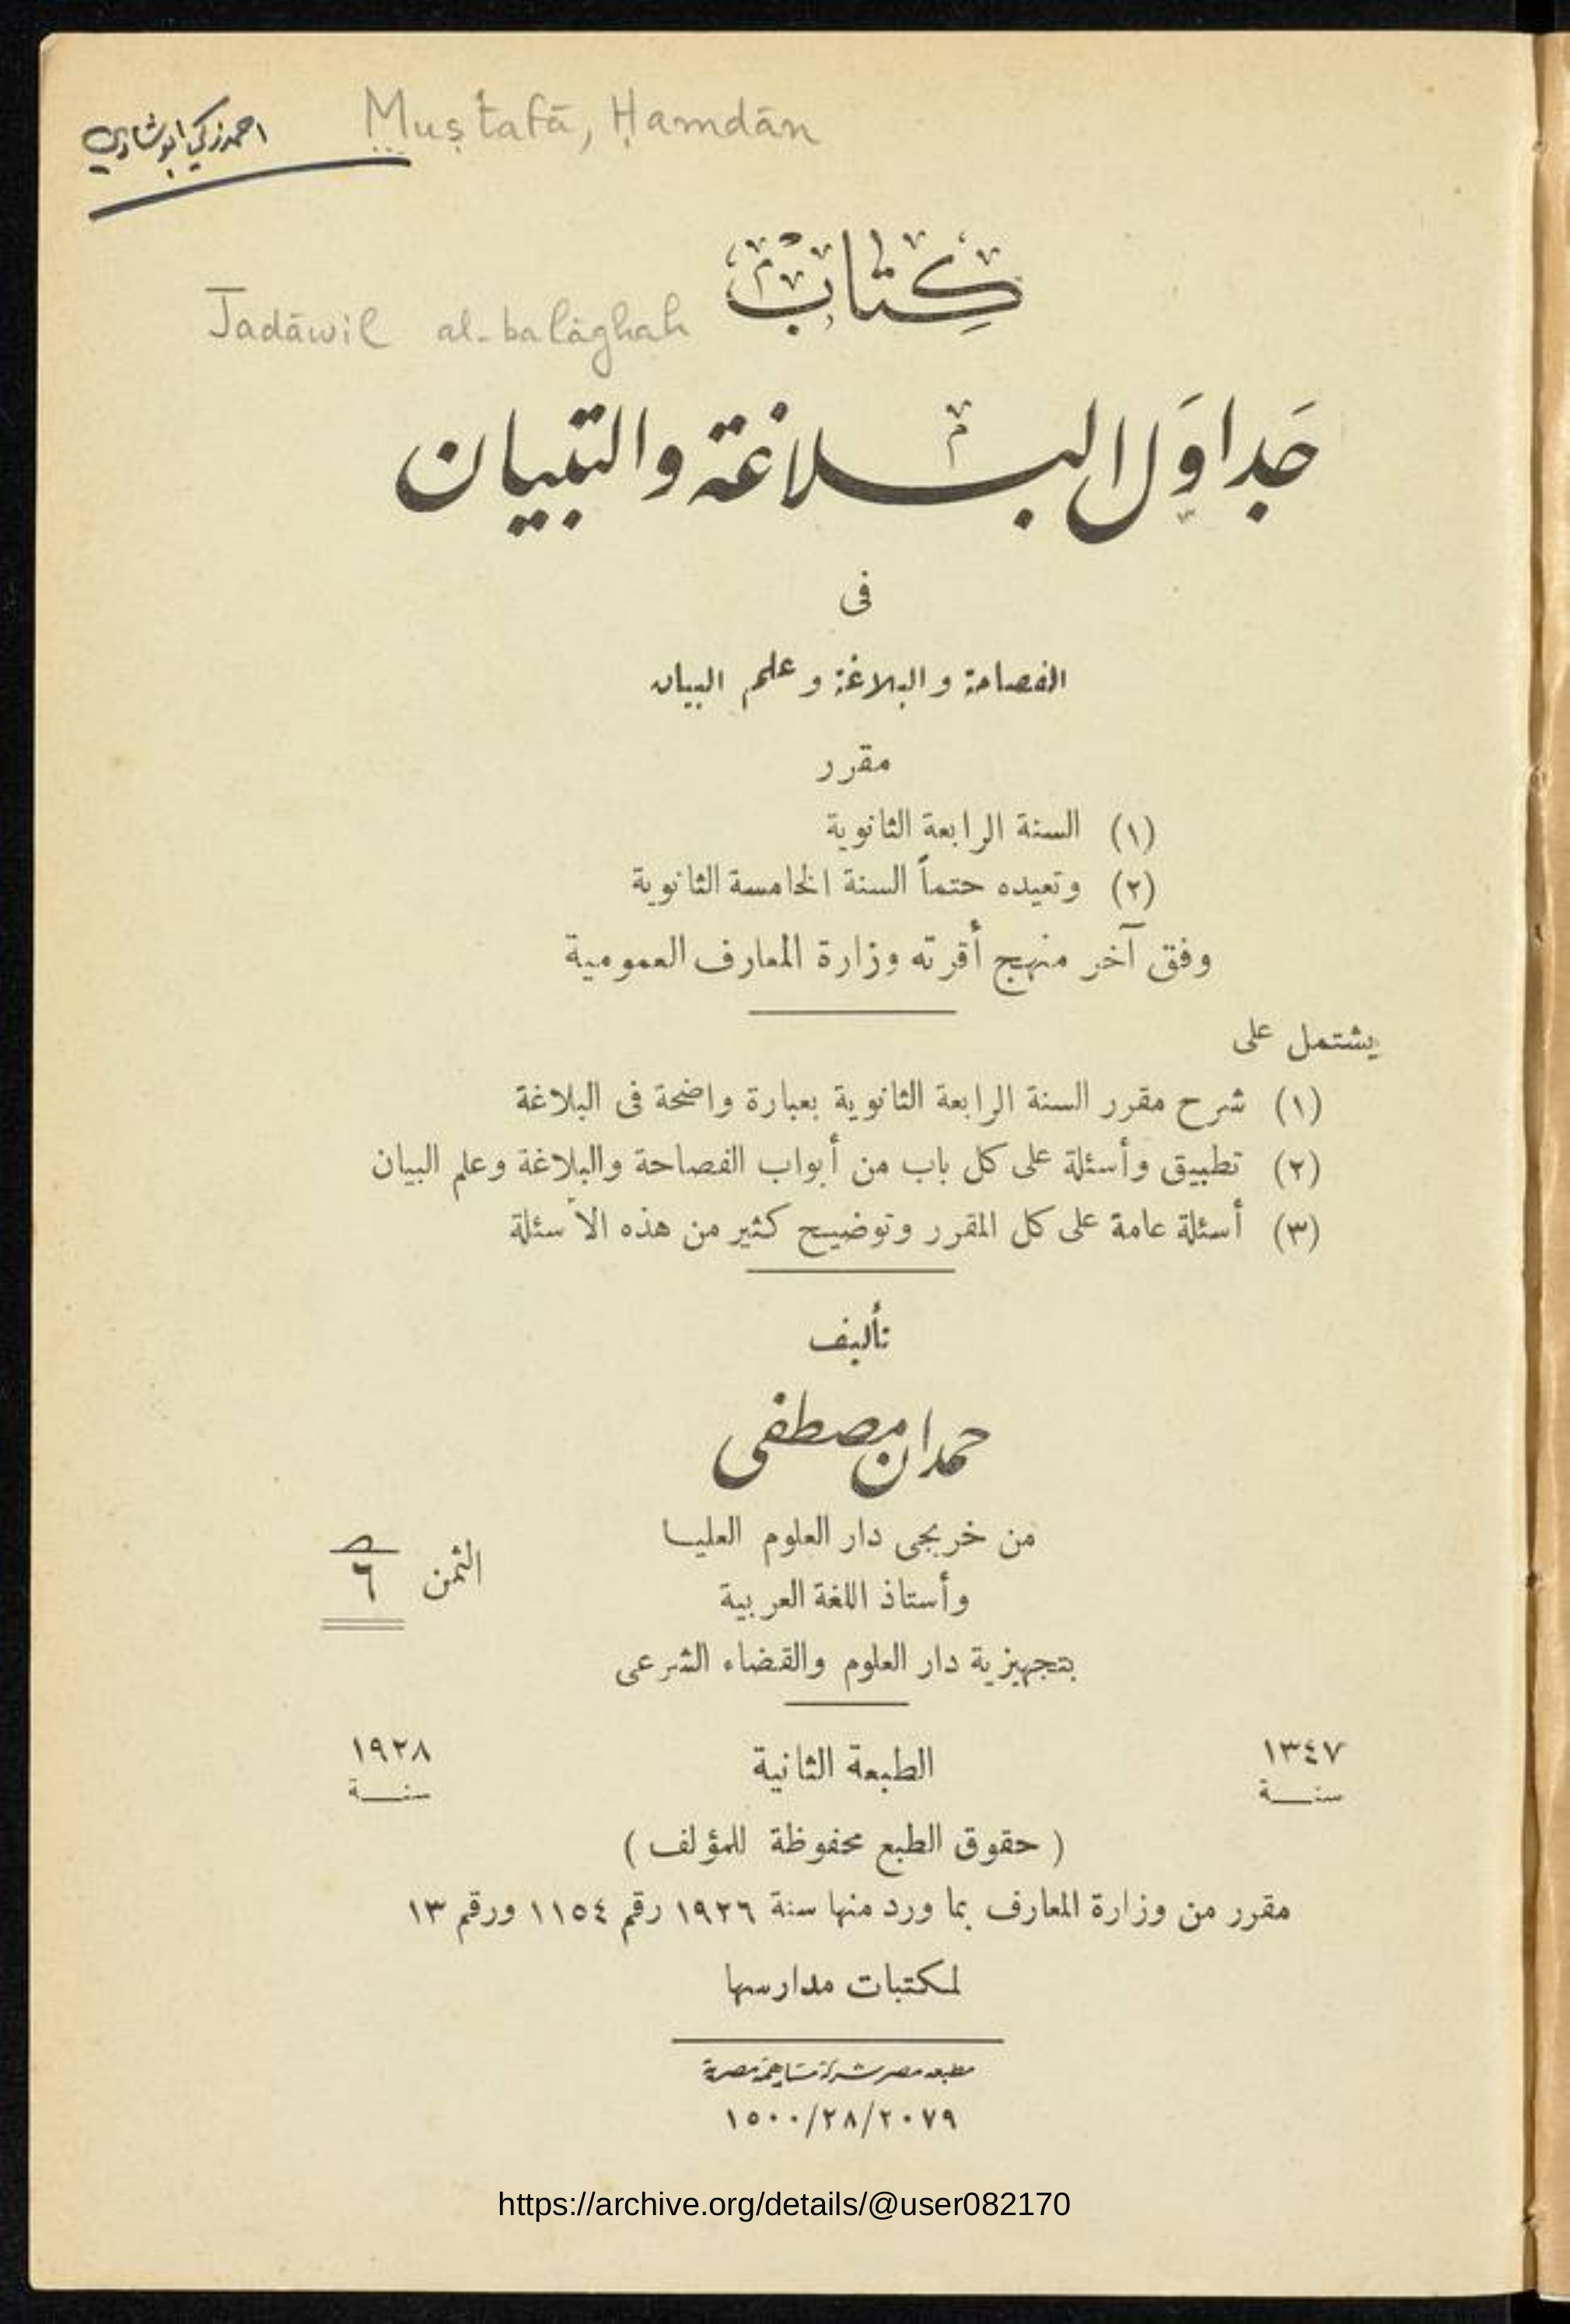 احمد زكي ابو شادي
Muṣṭafā, Ḥamdān
كتاب
Jadāwil al-balāghah
جداول البلاغة والتبيان
فى
الفصاحة والبلاغة وعلم البيان
مقرر
(١) السنة الرابعة الثانوية
(٢) وتعيده حتماً السنة الخامسة الثانوية
وفق آخر منهج أقرته وزارة المعارف العمومية
يشتمل على
(١) شرح مقرر السنة الرابعة الثانوية بعبارة واضحة فى البلاغة
(٢) تطبيق وأسئلة على كل باب من أبواب الفصاحة والبلاغة وعلم البيان
(٣) أسئلة عامة على كل المقرر وتوضيح كثير من هذه الأسئلة
تأليف
حمدان مصطفى
من خريجى دار العلوم العليا
الثمن ٦
وأستاذ اللغة العربية
بتجهيزية دار العلوم والقضاء الشرعى
١٣٤٧ الطبعة الثانية ١٩٢٨
سنة سنة
( حقوق الطبع محفوظة للمؤلف )
مقرر من وزارة المعارف بما ورد منها سنة ١٩٢٦ رقم ١١٥٤ ورقم ١٣
لمكتبات مدارسها
مطبعة مصر شركة مساهمة مصرية
١٥٠٠/٢٨/٢٠٧٩
https://archive.org/details/@user082170